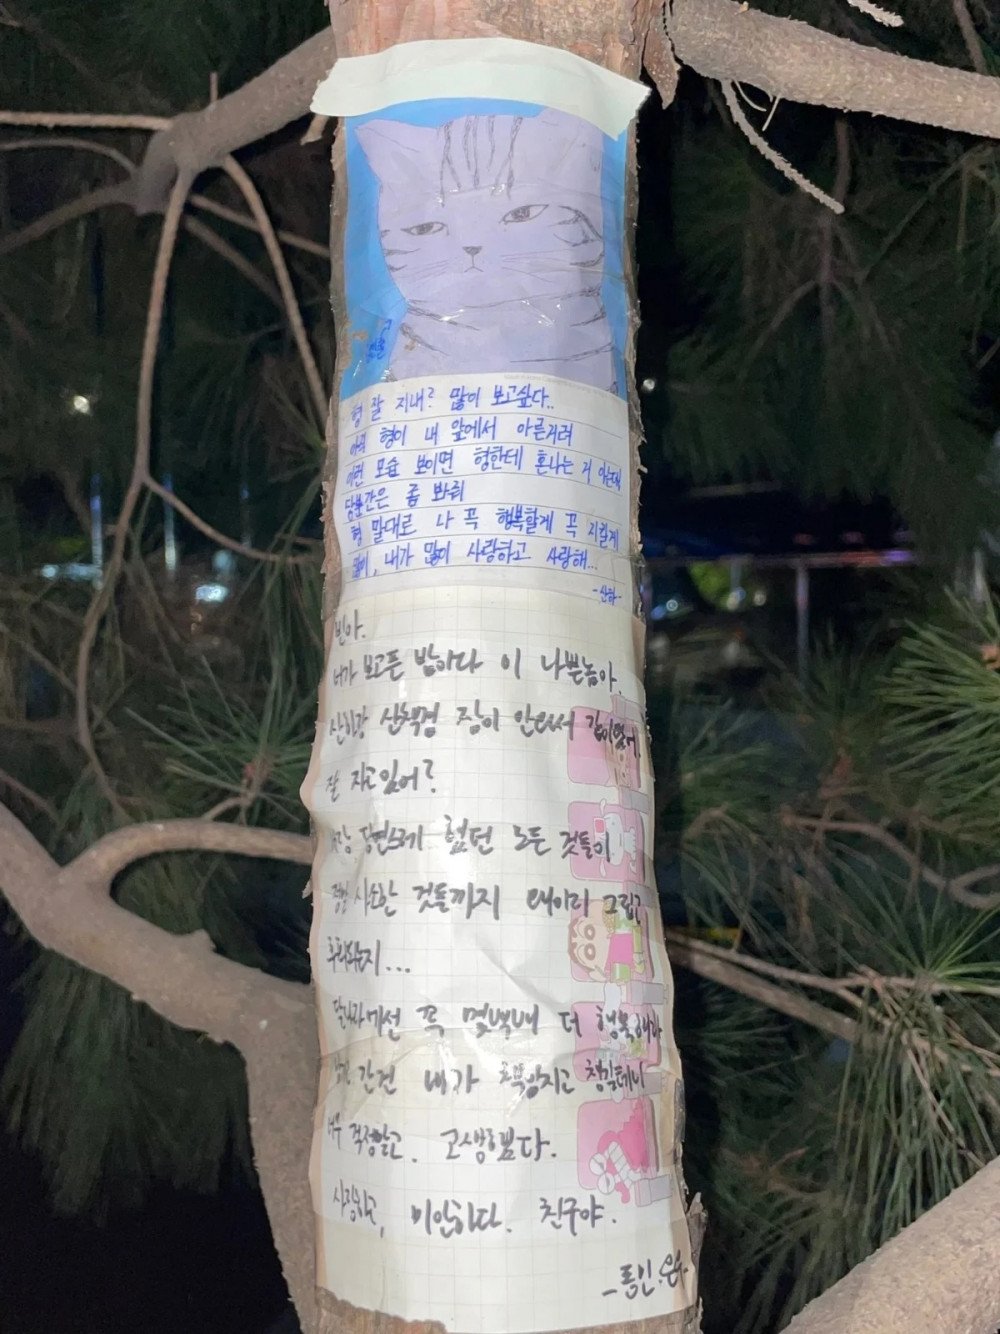 형 잘 지내? 많이 보고싶다..
아직 형이 내 앞에서 아른거려
이런 모습 보이면 형한테 혼나는 거 아는데
당분간은 좀 봐줘
형 말대로 나 꼭 행복할게 꼭 지킬게
빈이형, 내가 많이 사랑하고 사랑해...
-산하-
빈아.
너가 보고픈 밤이다 이 나쁜놈아
산하랑 산책겸 잠이 안와서 같이왔어
잘 자고있어?
너랑 당연스레 했던 모든 것들이
정말 사소한 것들까지 왜이리 그립고
후회되는지...
달나라에선 꼭 몇백배 더 행복해라
남은 간건 내가 책임지고 챙길테니
너무 걱정말고. 고생했다.
사랑하고, 미안하다. 친구야.